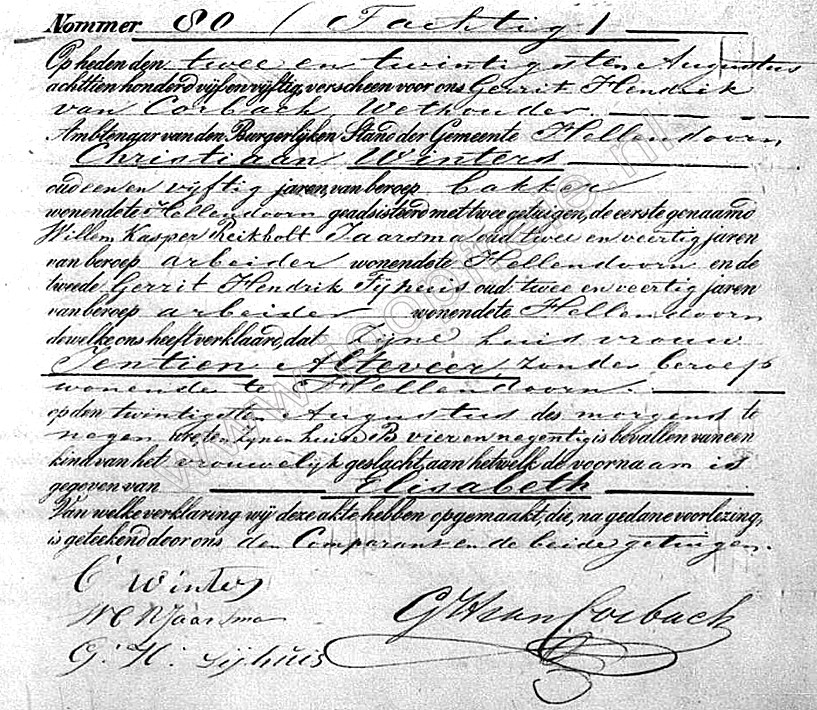 Nommer 80 (Tachtig)
Op heden den twee en twintigsten Augustus
achttien honderd vijf en vijftig, verscheen voor ons Gerrit Hendrik
van Corbach Wethouder.
Ambtenaar van den Burgerlijken Stand der Gemeente Hellendoorn
Christiaan Winters
oud een en vyftig jaren, van beroep bakker
wonende te Hellendoorn geadsisteerd met twee getuigen, de eerste genaamd
Willem Kasper Reikholt Jaarsma oud twee en veertig jaren
van beroep arbeider wonende te Hellendoorn en de
tweede Gerrit Hendrik Tijhuis oud twee en veertig jaren
van beroep arbeider wonende te Hellendoorn
dewelke ons heeft verklaard, dat zijne huisvrouw
Jentien Alteveer, zonder beroep
wonende te Hellendoorn.
op den twintigsten Augustus des morgens te
negen ure ten zijnen huize No vier en negentig is bevallen van een
kind van het vrouwelijk geslacht, aan hetwelk de voornaam is
gegeven van Elisabeth
Van welke verklaring wij deze akte hebben opgemaakt, die, na gedane voorlezing,
is geteekend door ons den Comparant en de beide getuigen.
C Winters
W C R Jaarsma
G H van Corbach
G. H. Tijhuis